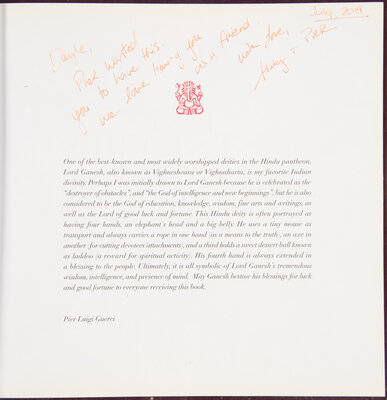 July, 2019
Dayle,
Pier wanted
you to have this.
We love having you
as a friend.
with love,
& Pier
One of the best-known and most widely worshipped deities in the Hindu pantheon,
Lord Ganesh, also known as Vighneshvara or Vighnaharta, is my favorite Indian
divinity. Perhaps I was initially drawn to Lord Ganesh because he is celebrated as the
"destroyer of obstacles", and "the God of intelligence and new beginnings", but he is also
considered to be the God of education, knowledge, wisdom, fine arts and writings, as
well as the Lord of good luck and fortune. This Hindu deity is often portrayed as
having four hands, an elephant's head and a big belly. He uses a tiny mouse as
transport and always carries a rope in one hand (as a means to the truth), an axe in
another (for cutting devotees' attachments), and a third holds a sweet dessert ball known
as laddoo (a reward for spiritual activity). His fourth hand is always extended in
a blessing to the people. Ultimately, it is all symbolic of Lord Ganesh's tremendous
wisdom, intelligence, and presence of mind. May Ganesh bestow his blessings for luck
and good fortune to everyone receiving this book.
Pier Luigi Guerci